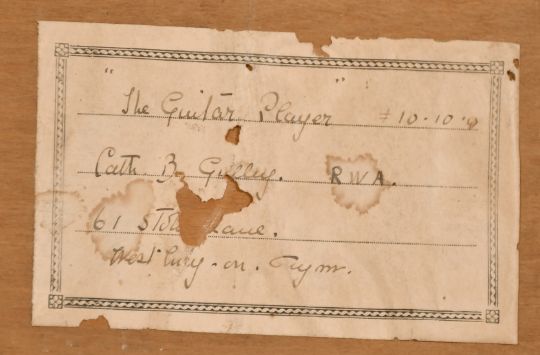 "The Guitar Player" £10-10-0
Cath B. Gulley. RWA.
61 Lane.
Westbury-on-Trym.